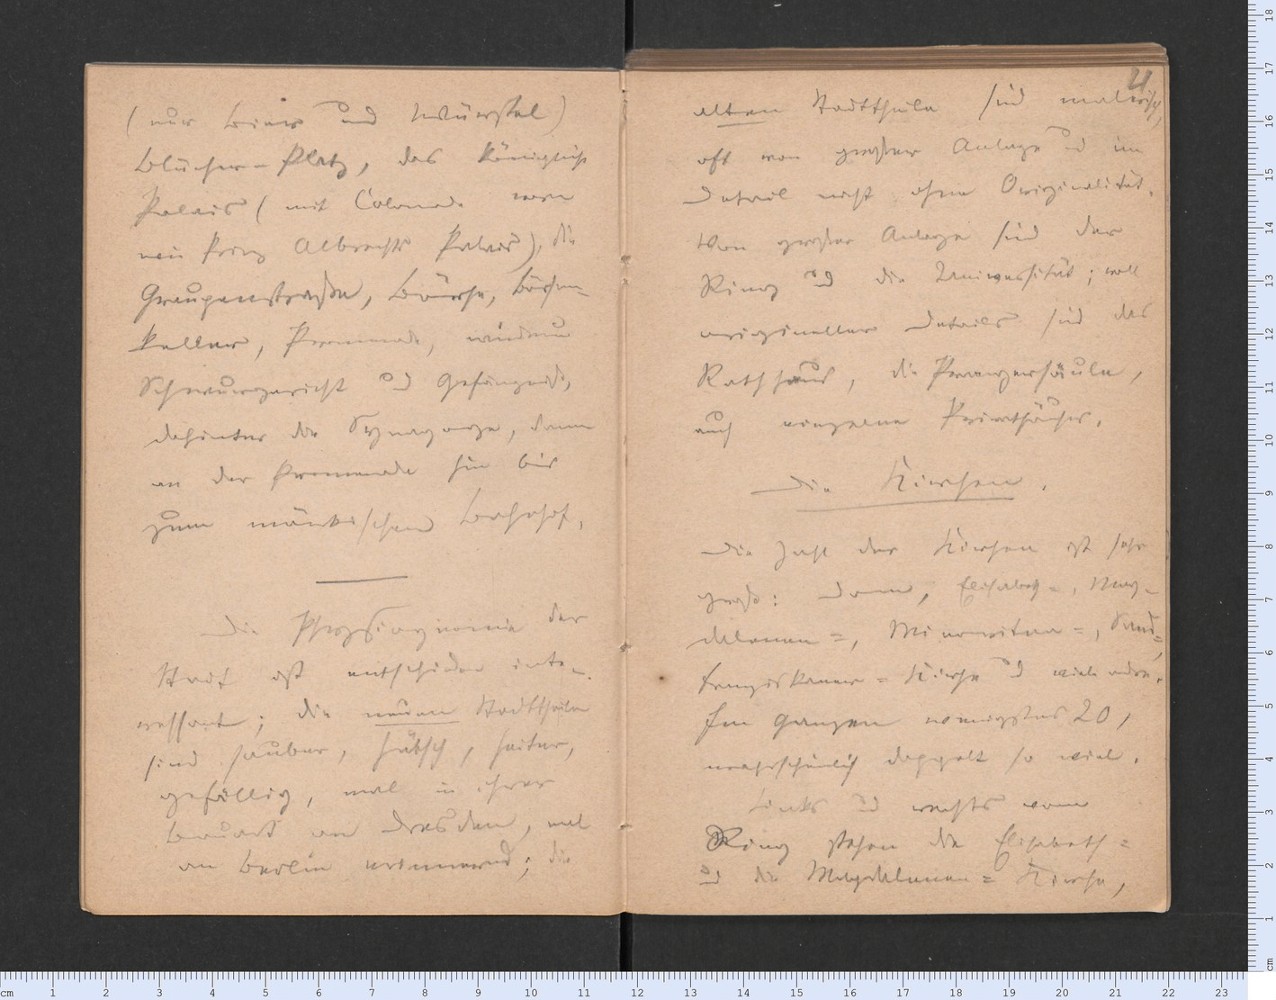 (nur Bier und Würstel)
Blücher-Platz, das Königliche
Palais (mit Colonnade wie
ein Prinz Albrechts Palais), die
Graupenstraße, Börse, Börsen-
keller, Promenade, wiederum
Schwurgericht und Gefängniß,
dahinter die Synagoge, dann
an der Promenade hin bis
zum märkischen Bahnhof.
Die Physiognomie der
Stadt ist entschieden inte-
ressant; die neuen Stadttheile
sind sauber, hübsch, heiter,
gefällig, mal in ihrer
Bauart an Dresden, mal
an Berlin erinnernd; die
11
alten Stadttheile sind malerisch,
oft von großer Anlage und im
Detail nicht ohne Originalität.
Von großer Anlage sind der
Ring und die Universität; voll
origineller Details sind das
Rathhaus, die Prangersäule,
auch einzelne Privathäuser.
Die Kirchen.
Die Zahl der Kirchen ist sehr
groß: Dom, Elisabeth=, Mag-
dalenen=, Minoriten=, Sand=,
Franziskaner=Kirche und viele andre.
Im Ganzen wenigstens 20,
wahrscheinlich doppelt so viel.
Links und rechts vom
Ring stehen die Elisabeth=
und die Magdalenen=Kirche,